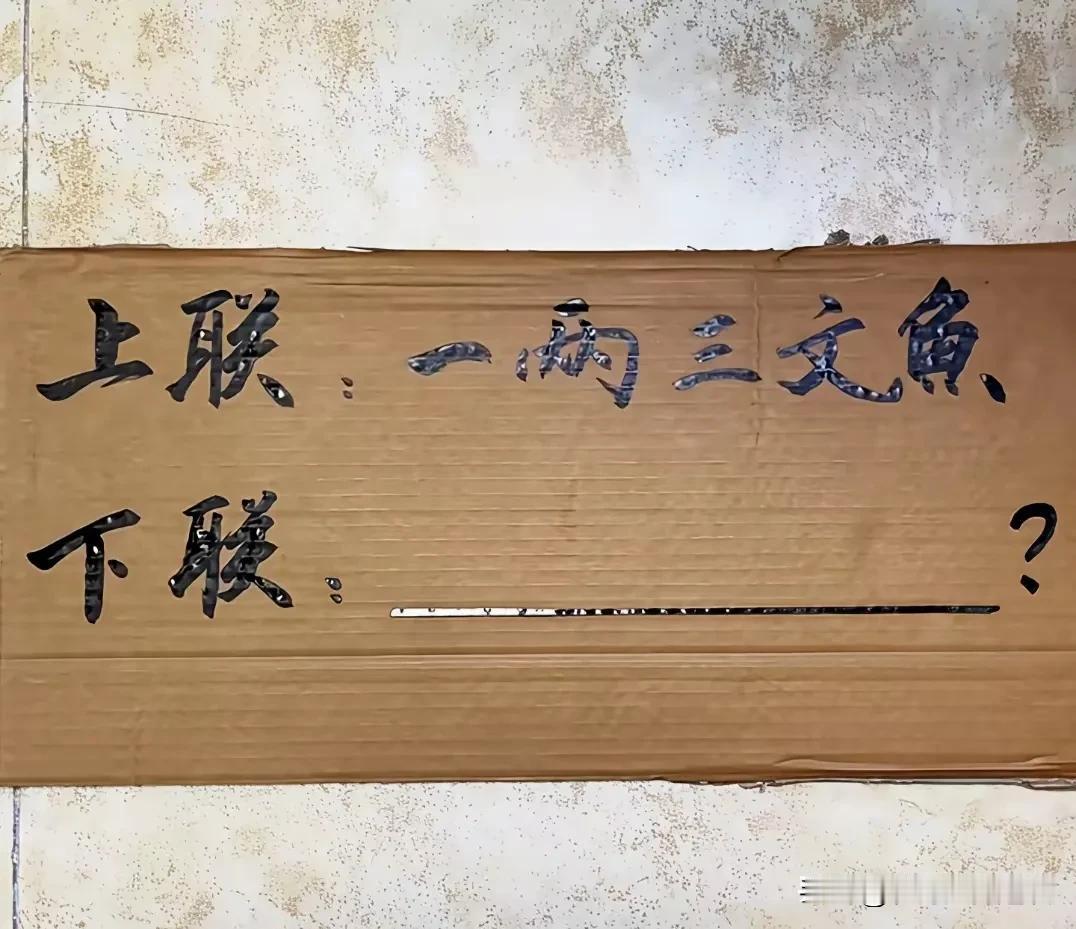 上联:一两三文鱼、
下联:___________?